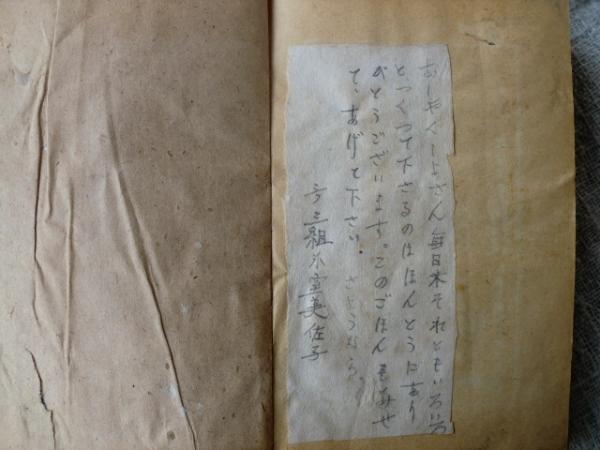 さん毎日木それともいろいろ
とつくつて下さるのはほんとうにあり
がとうございます。このごほんもみせ
て、あげて下さい。さようなら。
三組氷室美佐子